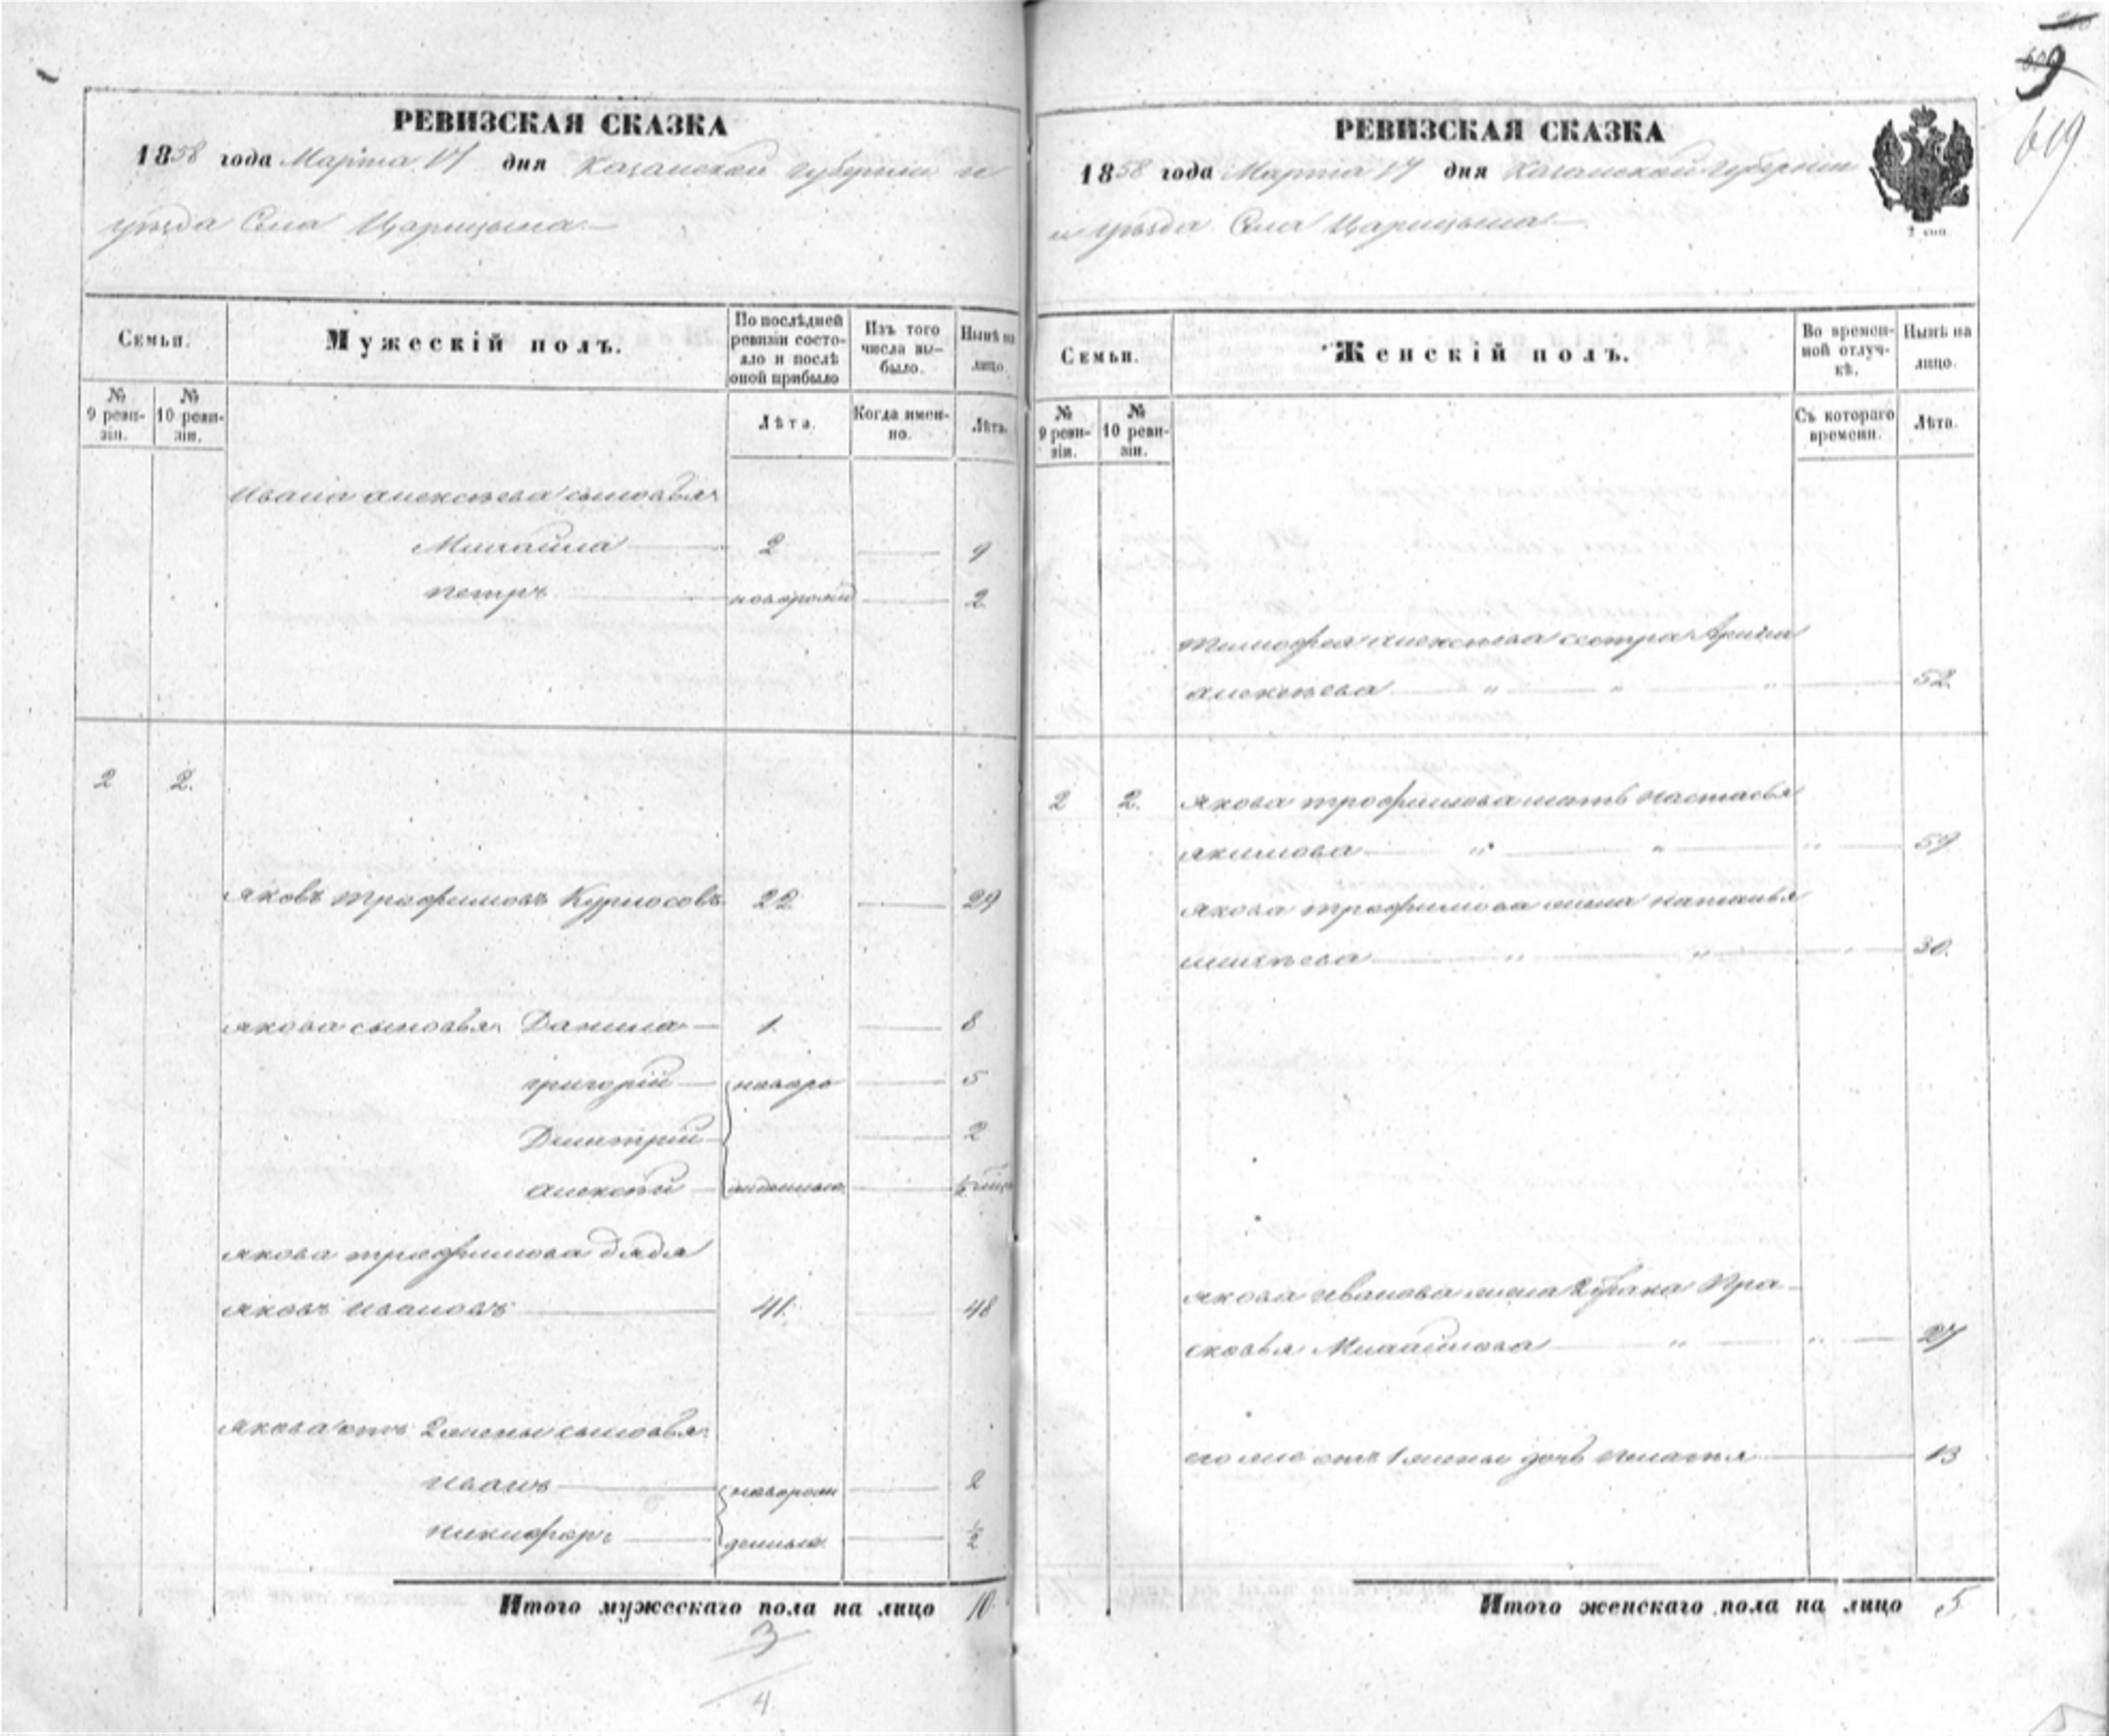 РЕВИЗСКАЯ СКАЗКА
1858 года Марта 17 дня Казанской губерніи и
уѣзда Села Царицына
Семьи.
Мужескій полъ.
По послѣдней ревизіи состояло и послѣ оной прибыло
Изъ того числа выбыло.
Нынѣ на лицо.
№ 9 ревизіи.
№ 10 ревизіи.
Лѣта.
Когда именно.
Лѣта.
Ивана Алексѣева сыновья
Михайла 2 9
Петръ новорожд 2
2 2.
Яковъ Трофимовъ Курносовъ 22 29
Якова сыновья Данила 1. 8
Григорій новоро 5
Дмитрій 2
Алексѣй жденные
Якова Трофимова дядя
Яковъ Ивановъ 41. 48
Якова отъ 2 жены сыновья
Иванъ новорож 2
Никифоръ денные ½
Итого мужескаго пола на лицо 10
3
4
РЕВИЗСКАЯ СКАЗКА
1858 года Марта 17 дня Казанской губерніи
и уѣзда Села Царицына
2 коп
9
619
Семьи.
Женскій полъ.
Во временной отлучкѣ.
Нынѣ на лицо.
№ 9 ревизіи.
№ 10 ревизіи.
Съ котораго времени.
Лѣта.
Тимофея Алексѣева сестра Арина
Алексѣева " " " 52
2 2. Якова Трофимова мать Настасья
Якимова " " " 59
Якова Трофимова жена Наталья
" " " 30.
Якова Иванова жена 2 брака Пра-
сковья Михайлова " " 27
его же отъ 1 жены дочь 13
Итого женскаго пола на лицо 5